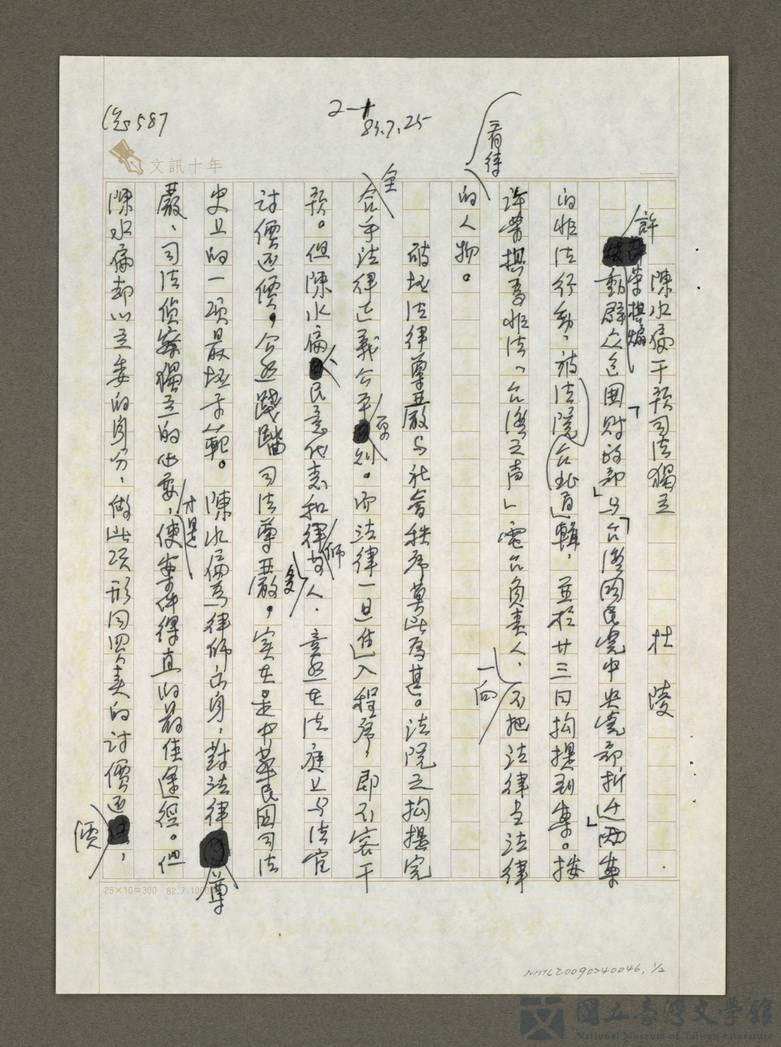 總587
2-1
83.7.25
文訊十年
陳水扁干預司法獨立 杜陵
許榮棋煽動群眾包圍「財政部」與「台灣國民黨中央黨部拆遷」兩案
的非法行動，被法院台北通輯，並於廿三日拘提到案。按
許榮棋為非法「台灣之聲」電台負責人，一向不把法律當法律看待
的人物。
破壞法律尊嚴與社會秩序莫此為甚。法院之拘提完
全合乎法律正義公平原則。而法律一旦進入程序，即不容干
預。但陳水扁以民意代表和律師多人，竟然在法庭上與法官
討價還價。公然踐踏司法尊嚴，實在是中華民國司法
史上的一項最壞示範。陳水扁為律師出身，對法律尊
嚴、司法偵察獨立的必要，才是使案件得直的最佳途徑。但
陳水扁卻以立委的身分，做此項形同買賣的討價還價，
25×10=300 82.7.10
NMTL20090240046, 1/2
國立臺灣文學館
National Museum of Taiwan Literature